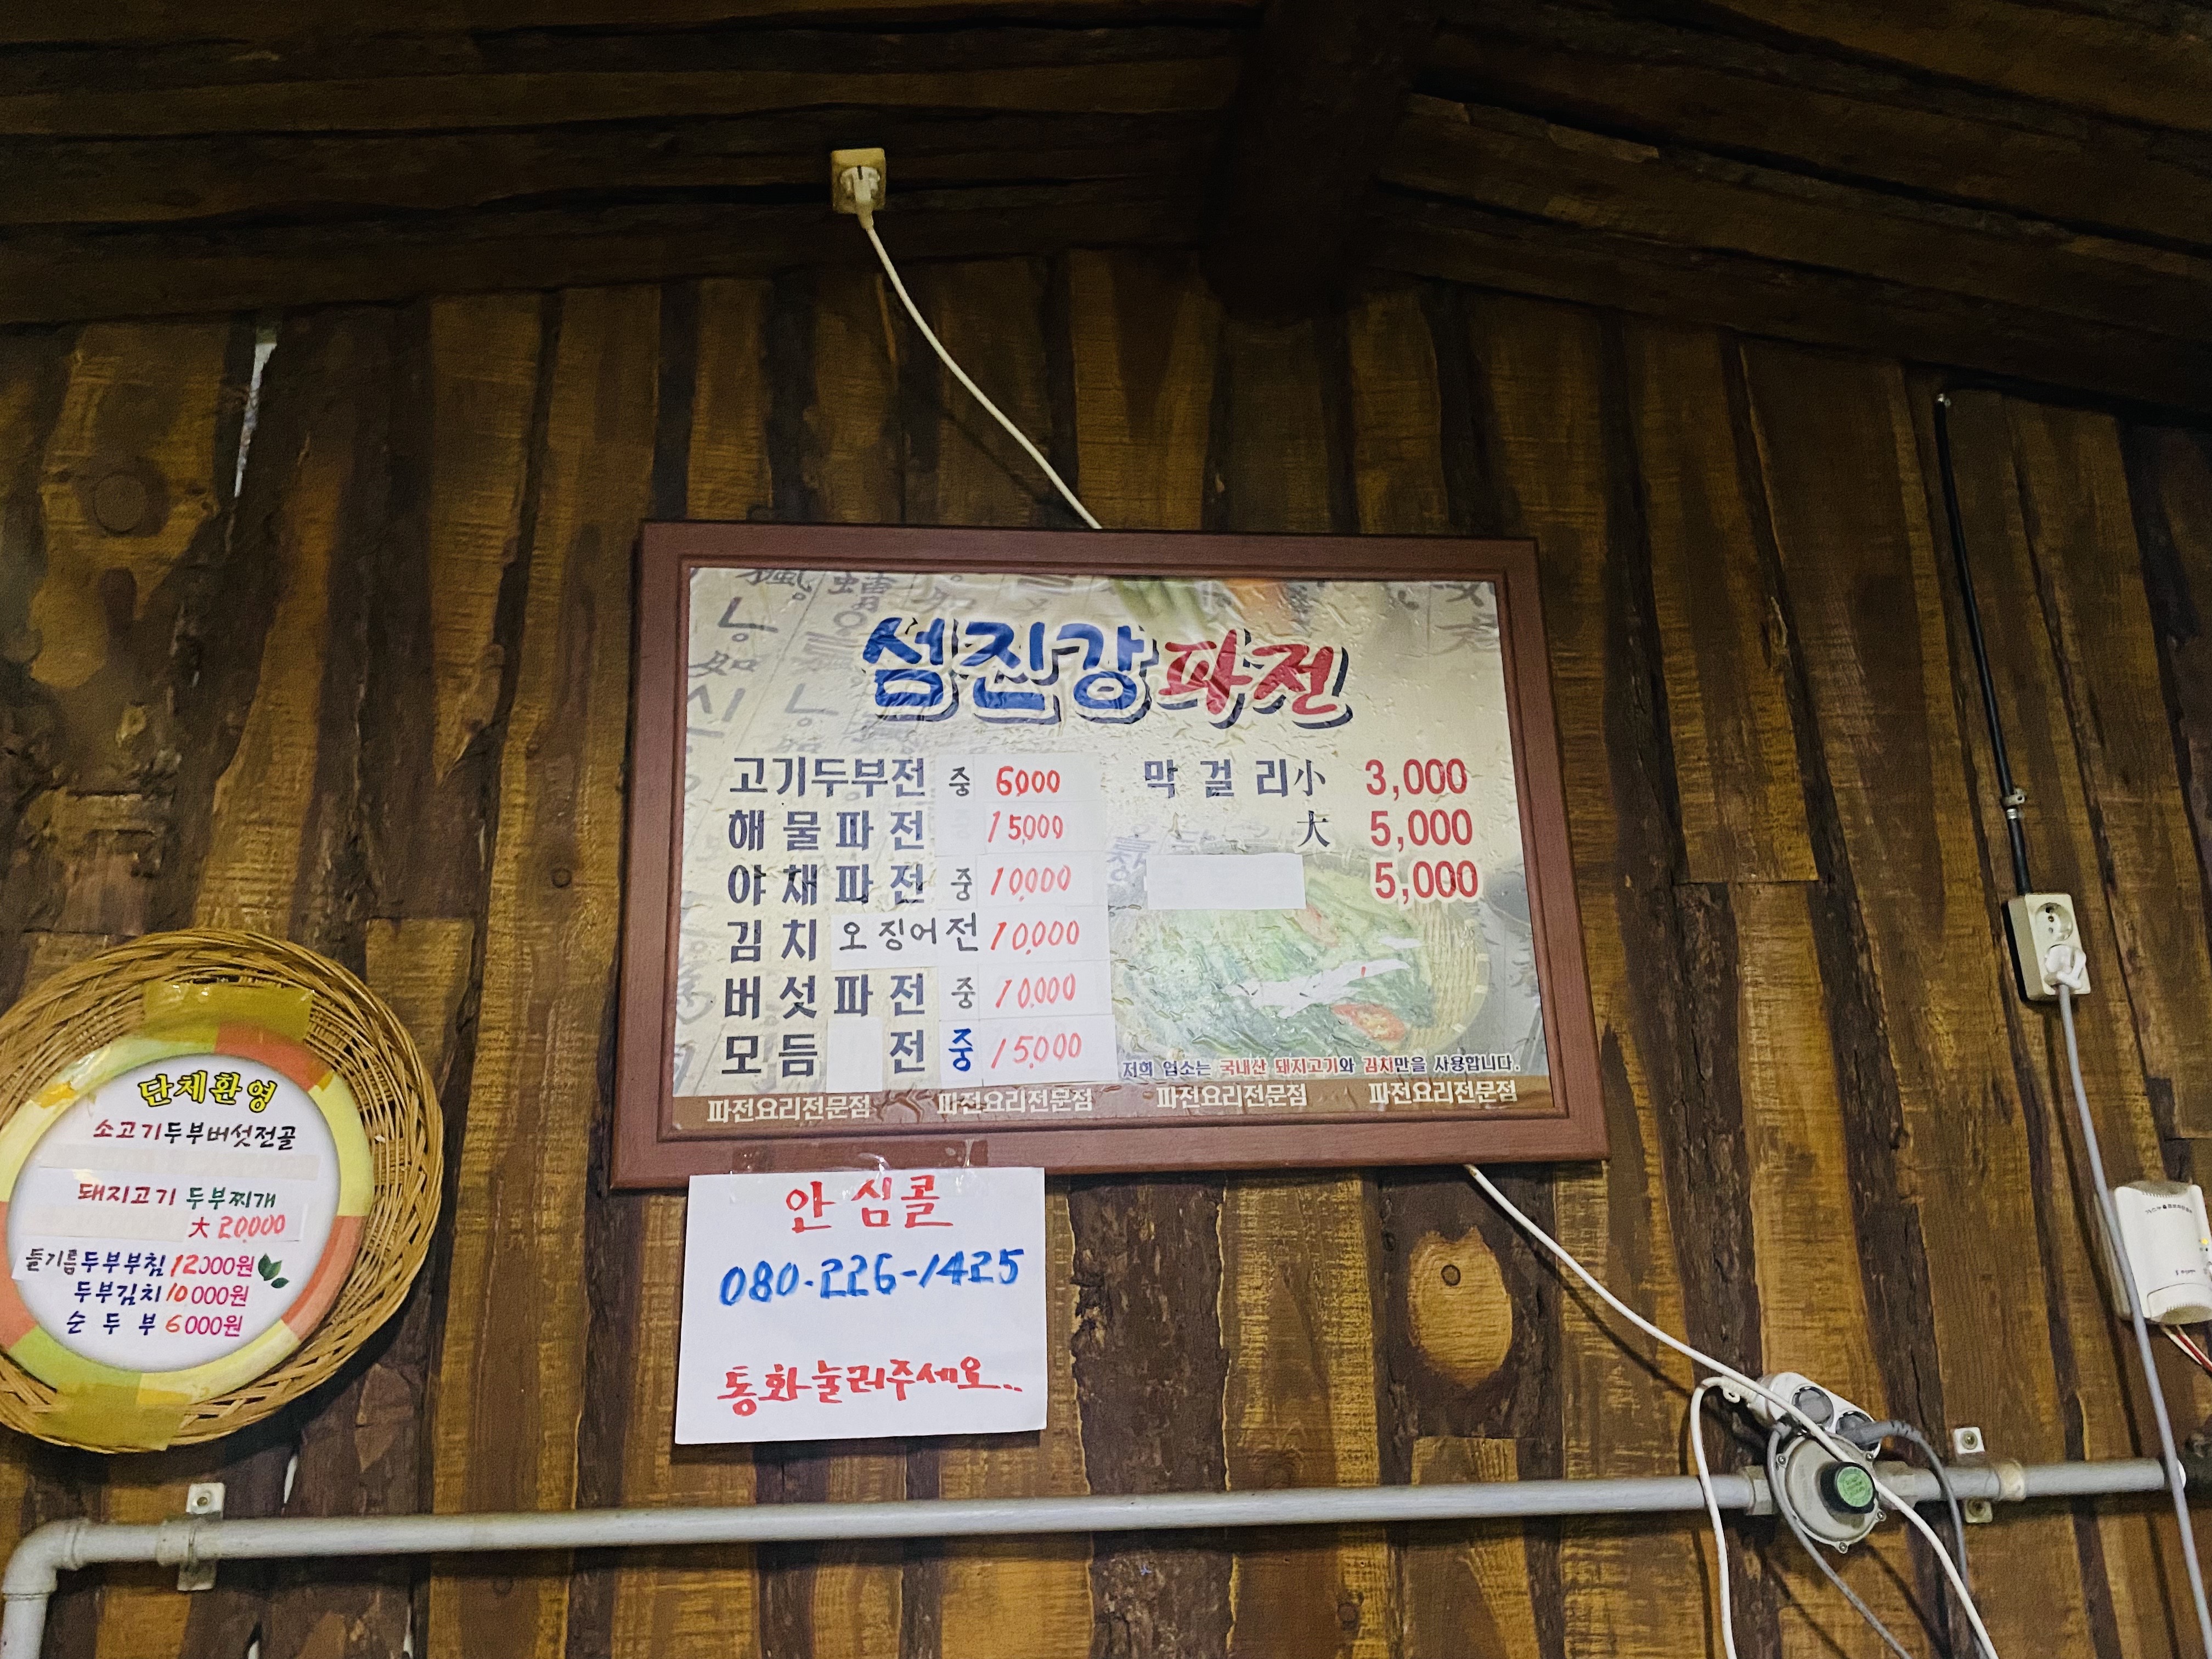 섬진강파전
고기두부전 중 6000
해물파전 15,000
야채파전 중 10,000
김치오징어전 10,000
버섯파전 중 10,000
모듬 전 중 15,000
막걸리小 3,000
大 5,000
5,000
저희 업소는 국내산 돼지고기와 김치만을 사용합니다.
파전요리전문점 파전요리전문점 파전요리전문점 파전요리전문점
단체환영
소고기두부버섯전골
돼지고기 두부찌개
大 20000
들기름두부부침 12000원
두부김치 10000원
순두부 6000원
안심콜
080-226-1425
통화눌러주세요..